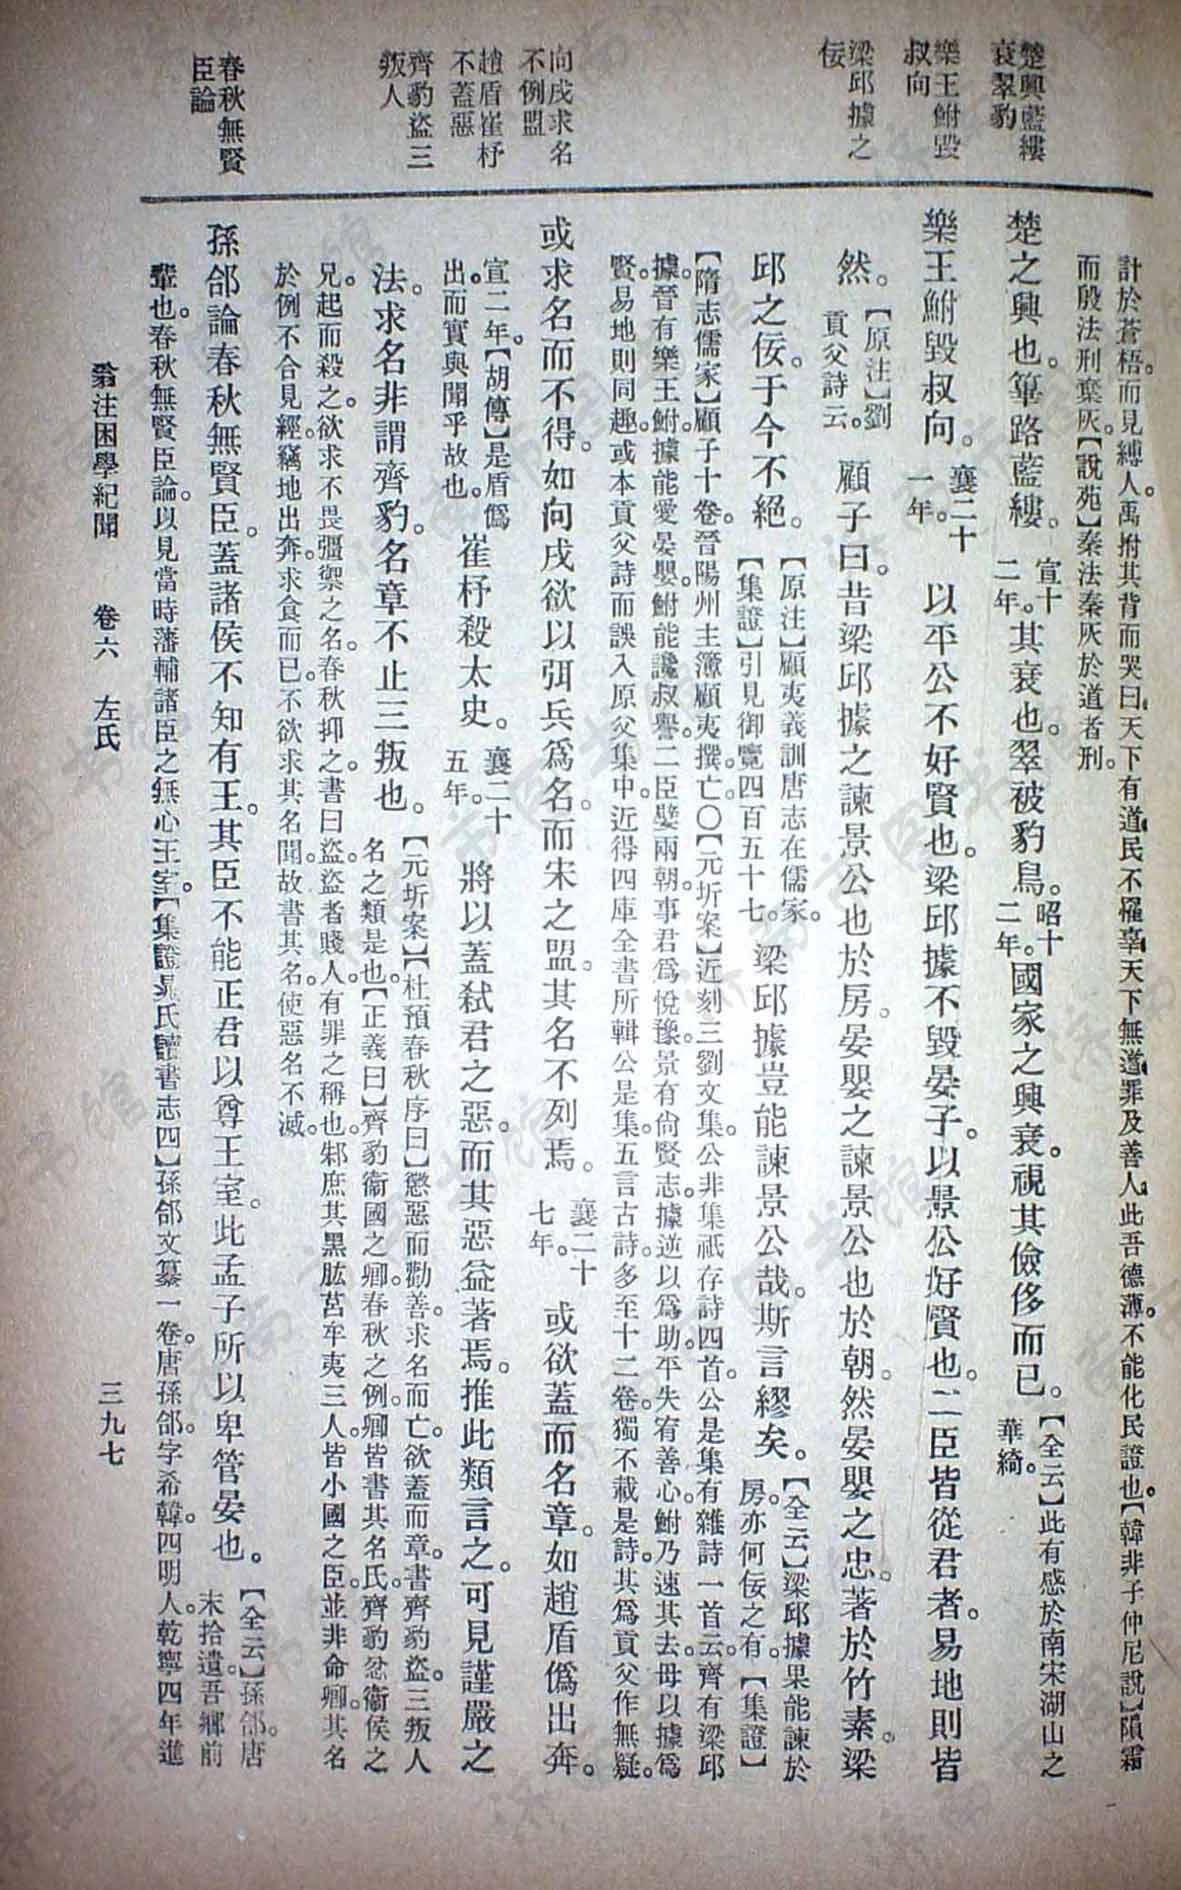 楚興藍縷
衰翠豹
樂王鮒毀
叔向
梁邱據之
佞
向戌求名
不例盟
趙盾崔杼
不蓋惡
齊豹盜三
叛人
春秋無賢
臣論
計於蒼梧。而見縛人。禹拊其背而哭曰。天下有道。民不罹辜。天下無道。罪及善人。此吾德薄。不能化民證也。【韓非子仲尼說】隕霜
而殷法刑棄灰。【說苑】秦法棄灰於道者刑。
楚之興也。篳路藍縷。宣十二年。其衰也。翠被豹舄。昭十二年。國家之興衰。視其儉侈而已。【全云】此有感於南宋湖山之華綺。
樂王鮒毀叔向。襄二十一年。以平公不好賢也。梁邱據不毀晏子。以景公好賢也。二臣皆從君者。易地則皆
然。【原注】劉貢父詩云。顧子曰。昔梁邱據之諫景公也於房。晏嬰之諫景公也於朝。然晏嬰之忠。著於竹素。梁
邱之佞。于今不絕。【原注】顧夷義訓唐志在儒家。【集證】引見御覽四百五十七。梁邱據豈能諫景公哉。斯言繆矣。【全云】梁邱據果能諫於房。亦何佞之有。【集證】
【隋志儒家】顧子十卷。晉陽州主簿顧夷撰。亡。〇【元圻案】近刻三劉文集。公非集祇存詩四首。公是集有雜詩一首云。齊有梁邱
據。晉有樂王鮒。據能愛晏嬰。鮒能讒叔譽。二臣嬖兩朝。事君爲悅豫。景有尙賢志。據逆以爲助。平失宥善心。鮒乃速其去。毋以據爲
賢。易地則同趣。或本貢父詩而誤入原父集中。近得四庫全書所輯公是集。五言古詩。多至十二卷。獨不載是詩。其爲貢父作無疑。
或求名而不得。如向戌欲以弭兵爲名。而宋之盟。其名不列焉。襄二十七年。或欲蓋而名章。如趙盾僞出奔。
宣二年。【胡傳】是盾僞出。而實與聞乎故也。崔杼殺太史。襄二十五年。將以蓋弒君之惡。而其惡益著焉。推此類言之。可見謹嚴之
法。求名非謂齊豹。名章不止三叛也。【元圻案】【杜預春秋序曰】懲惡而勸善。求名而亡。欲蓋而章。書齊豹盜。三叛人名之類是也。【正義曰】齊豹衞國之卿。春秋之例。卿皆書其名氏。齊豹忿衞侯之
兄。起而殺之。欲求不畏彊禦之名。春秋抑之。書曰盜。盜者賤人有罪之稱也。邾庶其黑肱莒牟夷三人。皆小國之臣。並非命卿。其名
於例不合見經。竊地出奔。求食而已。不欲求其名聞。故書其名。使惡名不滅。
孫郃論春秋無賢臣。蓋諸侯不知有王。其臣不能正君以尊王室。此孟子所以卑管晏也。【全云】孫郃。唐末拾遺。吾鄉前
輩也。春秋無賢臣論。以見當時藩輔諸臣之無心王室。【集證】晁氏讀書志四】孫郃文纂一卷。唐孫郃。字希韓。四明人。乾寧四年進
翁注困學紀聞　卷六　左氏　三九七